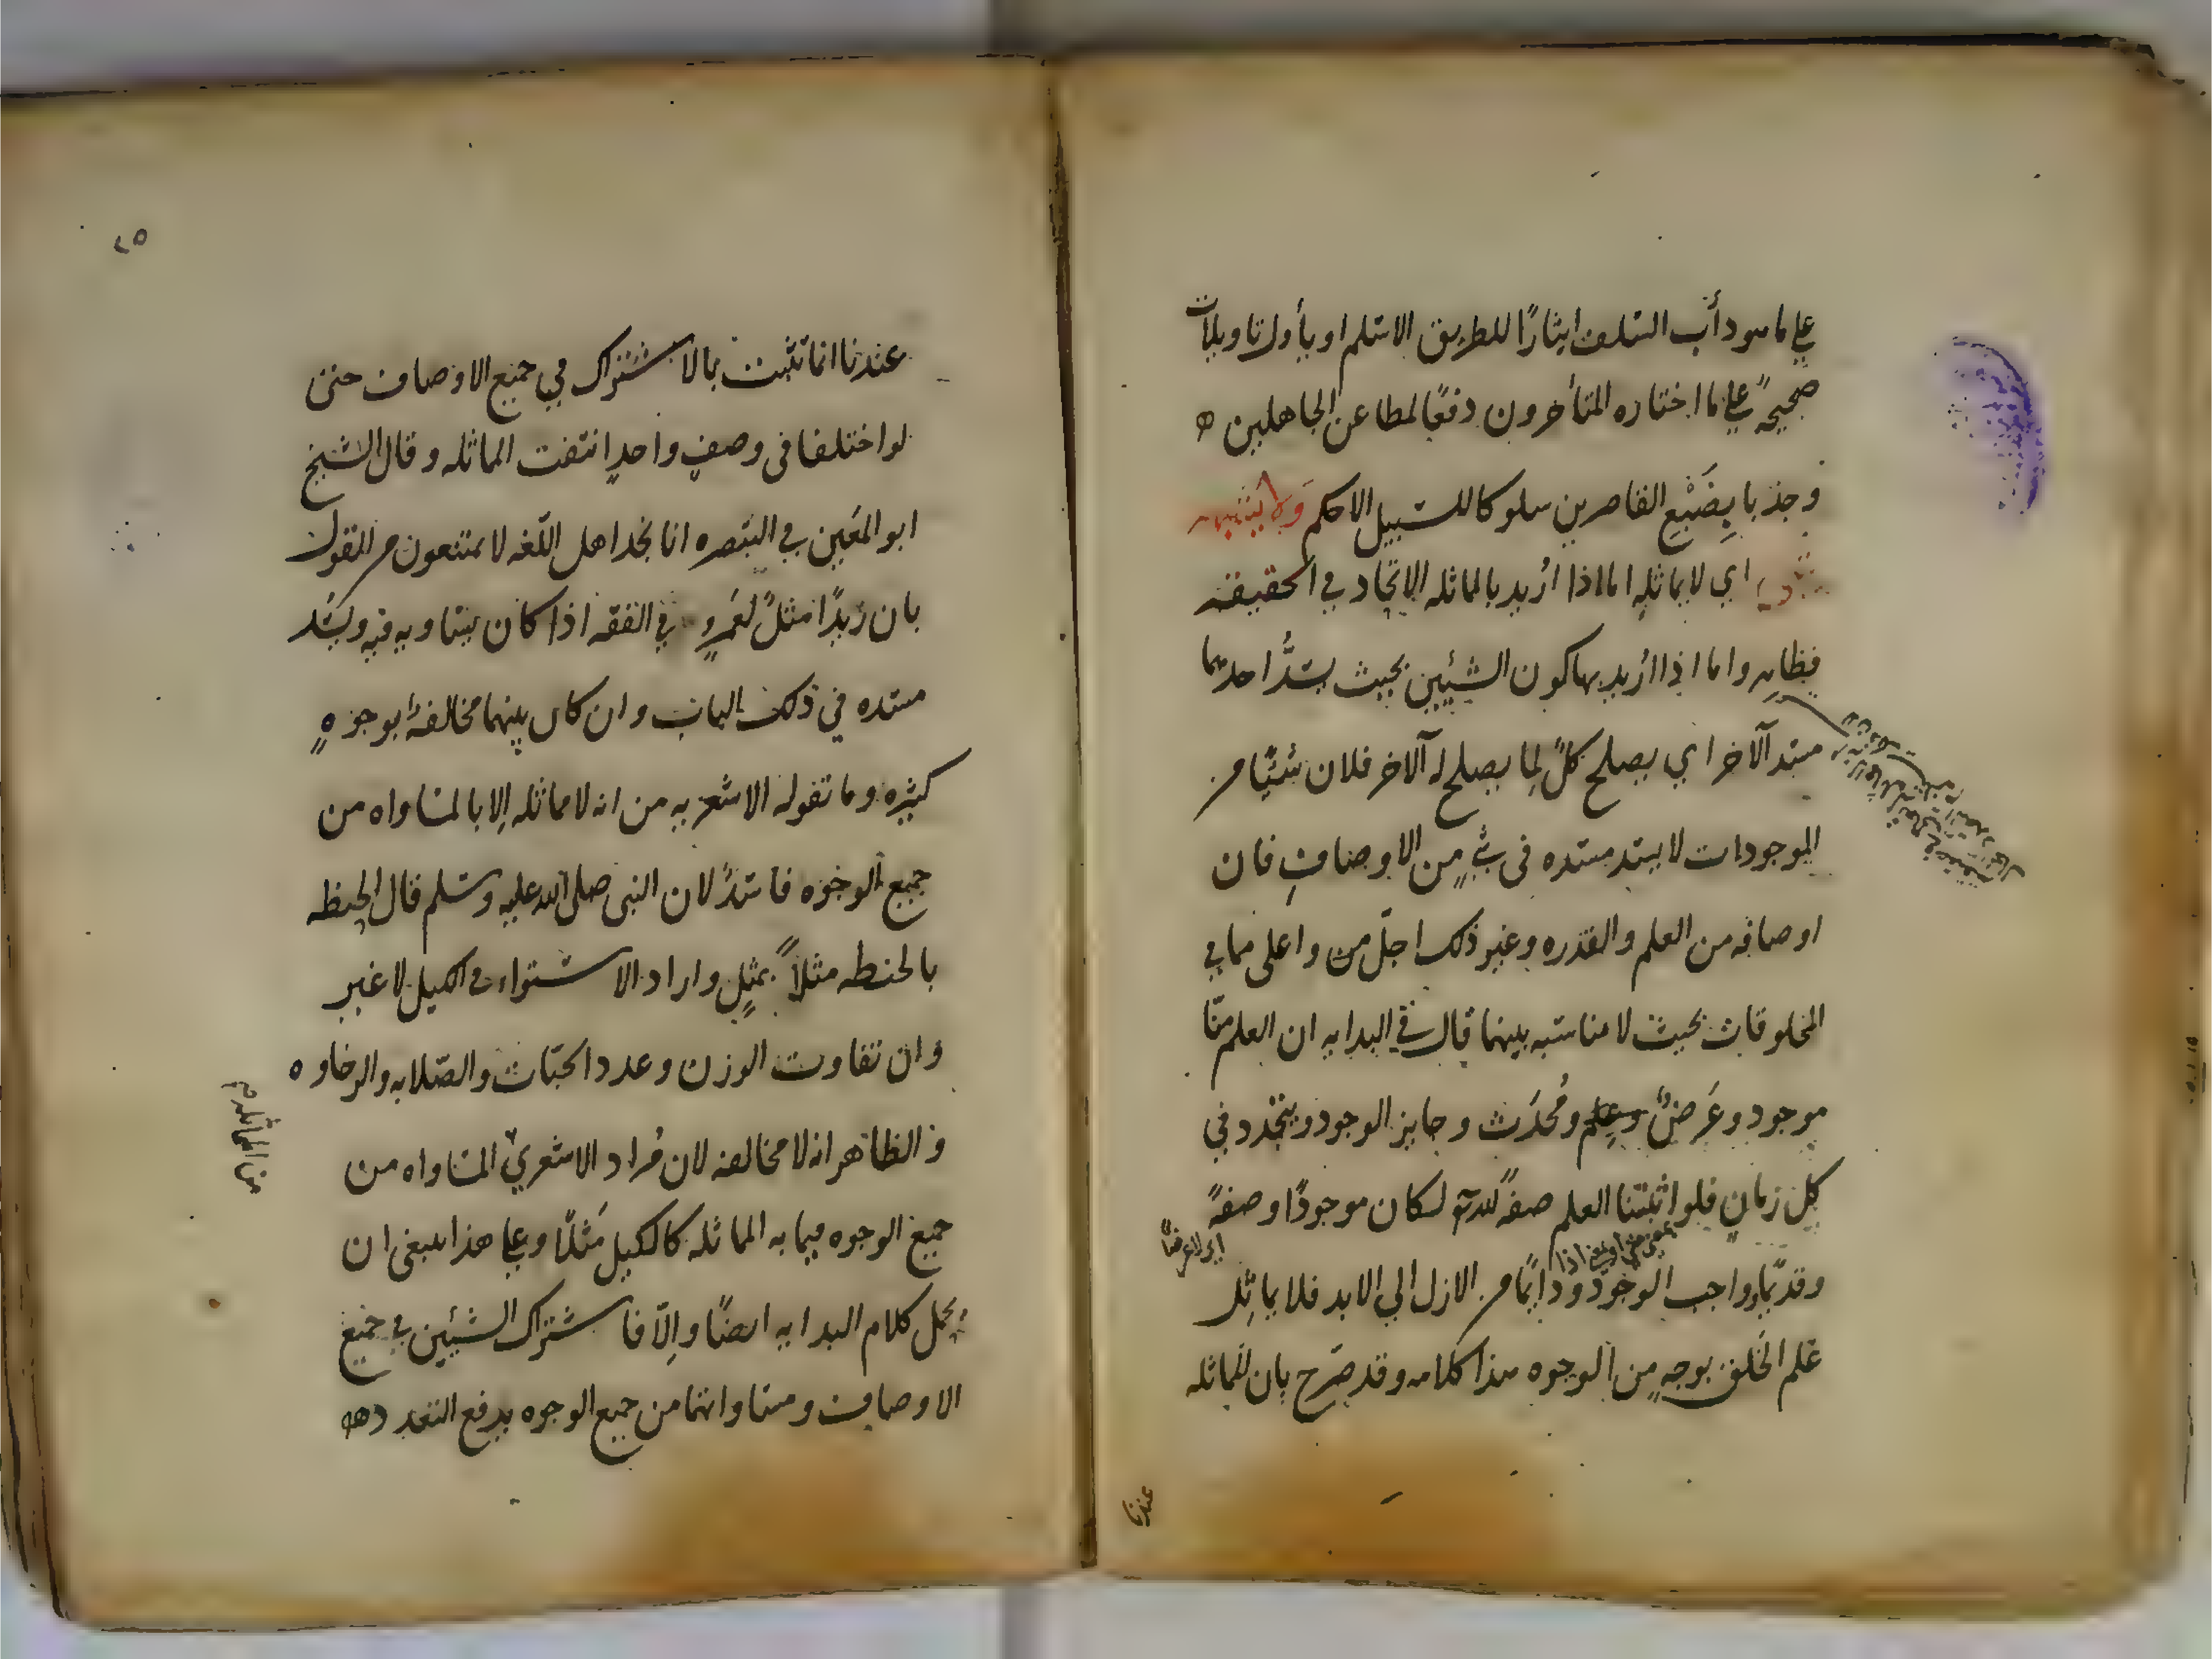 علي ما هو دأب السلف ايثارًا للطريق الاسلم او يأول تاويلات
صحيحةً علي ما اختاره المتأخرون دفعًا لمطاعن الجاهلين ه
وجذبا بِضَبْعِ القاصرين سلوكا للسبيل الاحكم وَلا يشبهه
شيء اي لا يماثله اما اذا اُريد بالمماثله الاتحاد في الحقيقه
فظاهر واما اذا اُريد بها كون الشيئين بحيث يسدُّ احدهما
مسد الآخر اي يصلح كلٌ لِما يصلح له الآخر فلان شيئًا من
الموجودات لا يسد مسده فى شئٍ من الاوصافِ فان
اوصافه من العلم والقدره وغير ذلك اجلّ من واعلى مما في
المخلوقات بحيث لا مناسبه بينهما قال في البدايه ان العلم منّا
موجود وعَرَضٌ وعلم ومُحدَث وجايز الوجود ويتجدد في
كل زمانٍ فلو اثبتنا العلم صفةً لله تع لكان موجودًا وصفةً
اي لا عرضًا
وقديمًا وواجب الوجود ودايمًا من الازل الي الابد فلا يماثل
علم الخلق بوجهٍ من الوجوه هذا كلامه وقد صَرّح بان المماثله
عندنا
٢٥
عندنا انما تثبت بالاشتراك في جميع الاوصاف حتى
لو اختلفا فى وصفٍ واحدٍ انتفت المماثله وقال الشيخ
ابو المعَين في التبصره انا نجد اهل اللّغه لا يمتنعون من القول
بان زيدًا مثلٌ لعَمرٍو في الفقه اذا كان يساويه فيه ويسُد
مسده في ذلك الباب وان كان بينهما مخالفةٌ بوجوهٍ
كثيره وما تقوله الاشعريه من انه لا مماثله اِلا بالمساواه من
جميع الوجوه فاسدٌ لان النبى صلى الله عليه وسلم قال الحنطه
بالحنطه مثلاً بمثلٍ واراد الاستواء في الكيل لا غير
وان تفاوت الوزن وعدد الحبّات والصّلابه والرخاوه
والظاهر انه لا مخالفه لان مُراد الاشعريّ المساواه من
جميع الوجوه فيما به المماثله كالكيل مَثلًا وعلي هذا ينبغى ان
يحمل كلام البدايه ايضًا واِلاّ فاشتراك الشيئين في جميع
الاوصاف ومساواتهما من جميع الوجوه يدفع التعدد هه